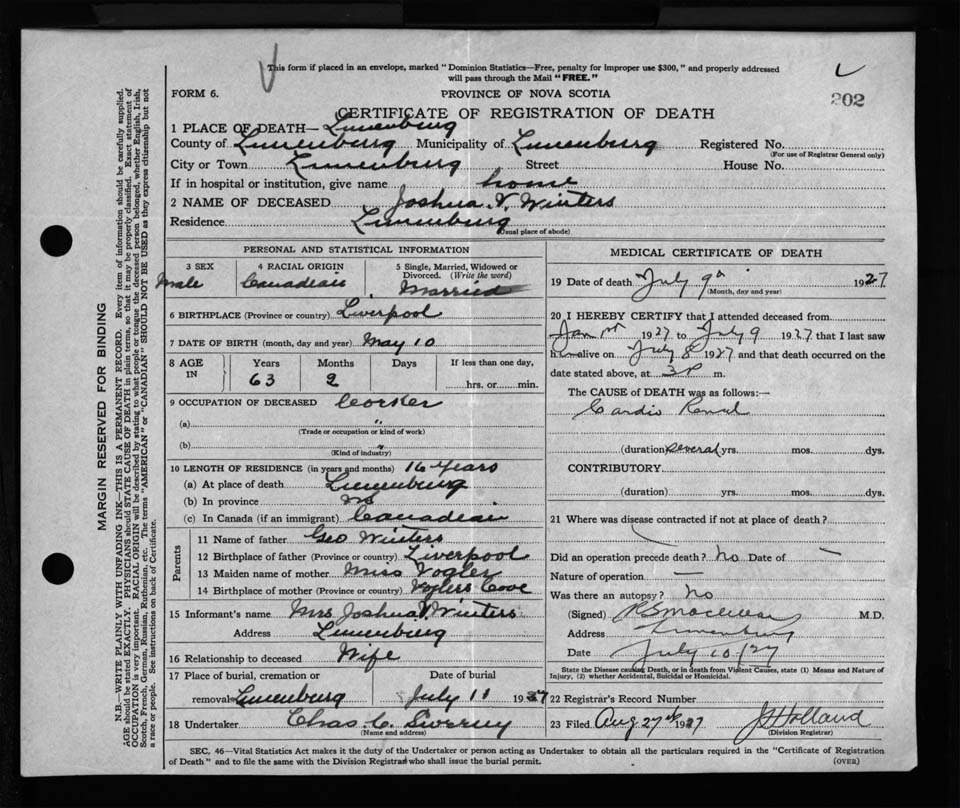 This form if placed in an envelope, marked "Dominion Statistics—Free, penalty for improper use $300," and properly addressed
will pass through the Mail "FREE."
FORM 6.
PROVINCE OF NOVA SCOTIA
202
CERTIFICATE OF REGISTRATION OF DEATH
1 PLACE OF DEATH— Lunenburg
County of Lunenburg Municipality of Lunenburg Registered No.
(For use of Registrar General only)
City or Town Lunenburg Street House No.
If in hospital or institution, give name home
2 NAME OF DECEASED Joshua V. Winters
Residence Lunenburg
(Usual place of abode)
MARGIN RESERVED FOR BINDING
N.B.—WRITE PLAINLY WITH UNFADING INK—THIS IS A PERMANENT RECORD. Every item of information should be carefully supplied.
AGE should be stated EXACTLY. PHYSICIANS should STATE CAUSE OF DEATH in plain terms, so that it may be properly classified. Exact statement of
OCCUPATION is very important. RACIAL ORIGIN will be described by stating to what people or tongue the deceased person belonged, whether English, Irish,
Scotch, French, German, Russian, Ruthenian, etc. The terms "AMERICAN" or "CANADIAN" SHOULD NOT BE USED as they express citizenship but not
a race or people. See instructions on back of Certificate.
PERSONAL AND STATISTICAL INFORMATION
3 SEX
Male
4 RACIAL ORIGIN
Canadian
5 Single, Married, Widowed or
Divorced. (Write the word)
Married
6 BIRTHPLACE (Province or country) Liverpool
7 DATE OF BIRTH (month, day and year) May 10
8 AGE IN
Years Months Days If less than one day,
63 2 hrs. or min.
9 OCCUPATION OF DECEASED
(a) "
(Trade or occupation or kind of work)
(b) "
(Kind of industry)
10 LENGTH OF RESIDENCE (in years and months) 16 Years
(a) At place of death Lunenburg
(b) In province NS
(c) In Canada (if an immigrant) Canadian
Parents
11 Name of father Geo Winters
12 Birthplace of father (Province or country) Liverpool
13 Maiden name of mother Miss Vogler
14 Birthplace of mother (Province or country) Voglers Cove
15 Informant's name Mrs Joshua V. Winters
Address Lunenburg
16 Relationship to deceased Wife
17 Place of burial, cremation or Date of burial
removal Lunenburg July 11 1927
18 Undertaker Chas C.
(Name and address)
MEDICAL CERTIFICATE OF DEATH
19 Date of death July 9th 1927
(Month, day and year)
20 I HEREBY CERTIFY that I attended deceased from
Jan 1st 1927 to July 9 1927 that I last saw
him alive on July 8 1927 and that death occurred on the
date stated above, at 3 P m.
The CAUSE OF DEATH was as follows:—
Cardio Renal
(duration) several yrs. mos. dys.
CONTRIBUTORY
(duration) yrs. mos. dys.
21 Where was disease contracted if not at place of death?
Did an operation precede death? No Date of —
Nature of operation —
Was there an autopsy? No
(Signed) M.D.
Address Lunenburg
Date July 10/27
State the Disease causing Death, or in death from Violent Causes, state (1) Means and Nature of
Injury, (2) whether Accidental, Suicidal or Homicidal.
22 Registrar's Record Number
23 Filed Aug 27th 1927 Holland
(Division Registrar)
SEC. 46—Vital Statistics Act makes it the duty of the Undertaker or person acting as Undertaker to obtain all the particulars required in the "Certificate of Registration
of Death" and to file the same with the Division Registrar who shall issue the burial permit.
(OVER)